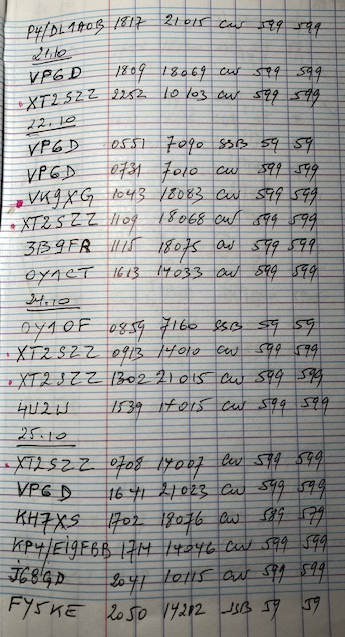 P4/DL1AOB 1817 21015 CW 599 599
21.10
VP6D 1809 18069 CW 599 599
XT2SZZ 2252 10103 CW 599 599
22.10
VP6D 0551 7090 SSB 59 59
VP6D 0731 7010 CW 599 599
VK9XG 1043 18083 CW 599 599
XT2SZZ 1109 18068 CW 599 599
3B9FR 1115 18075 CW 599 599
OY1CT 1613 14033 CW 599 599
24.10
OY1OF 0859 7160 SSB 59 59
XT2SZZ 0913 14010 CW 599 599
XT2SZZ 1302 21015 CW 599 599
4U2U 1539 14015 CW 599 599
25.10
XT2SZZ 0708 14007 CW 599 599
VP6D 1641 21023 CW 599 599
KH7XS 1702 18076 CW 589 579
KP4/EI9FBB 1714 14046 CW 599 599
J68GD 2041 10115 CW 599 599
FY5KE 2050 14202 SSB 59 59